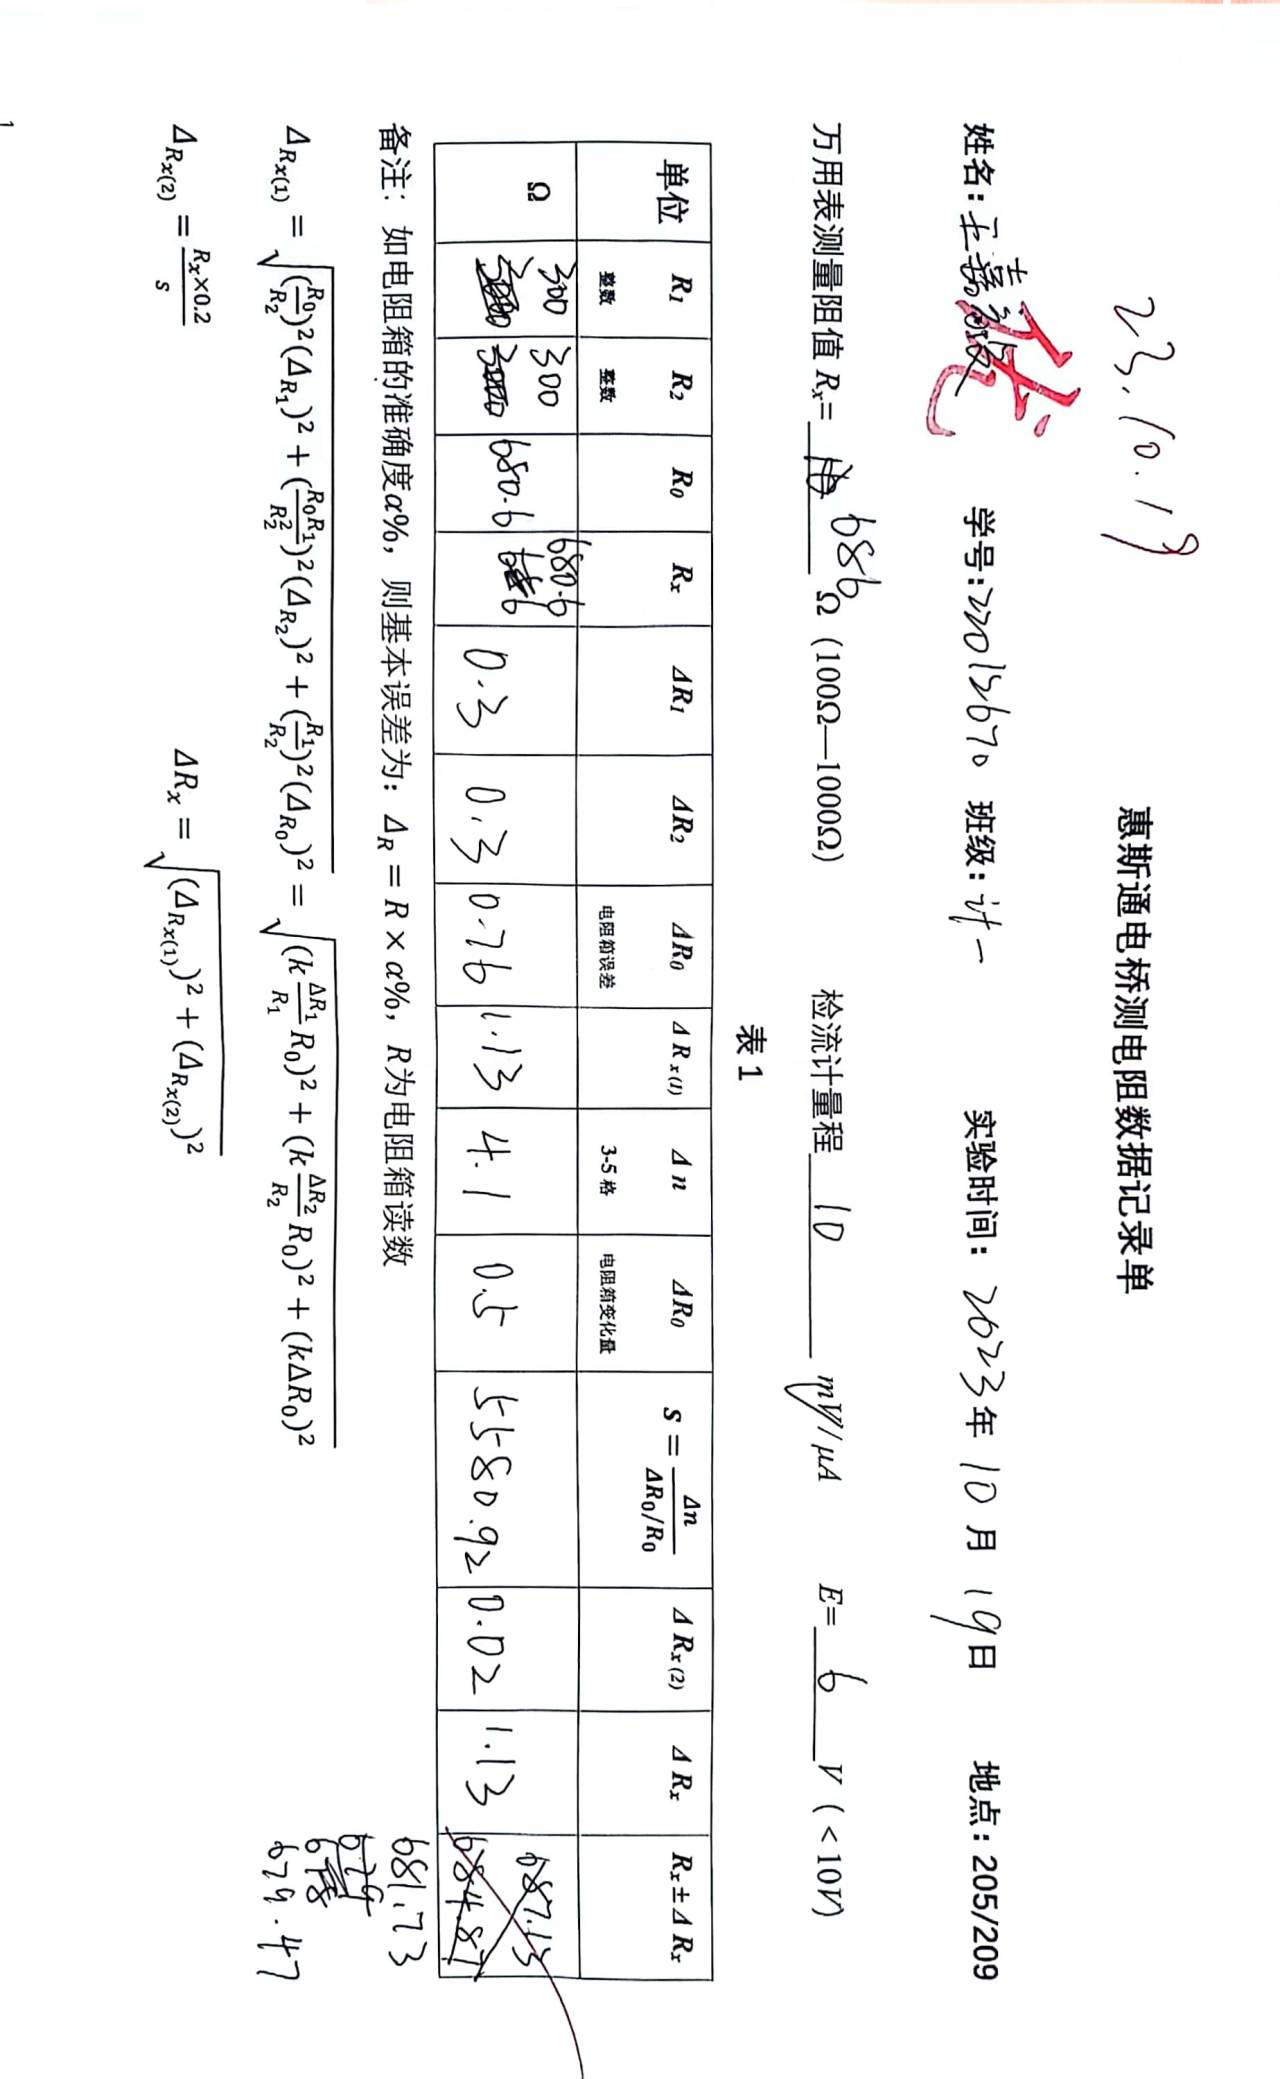 23.10.19
惠斯通电桥测电阻数据记录单
姓名: 学号:22015670 班级:计一 实验时间: 2023年 10月 19日 地点:205/209
万用表测量阻值 Rₓ= 686 Ω (100Ω—1000Ω) 检流计量程 10 mV/μA E= 6 V (<10V)
表 1
单位 R₁ R₂ R₀ Rₓ ΔR₁ ΔR₂ ΔR₀ ΔRₓ₍₁₎ Δn ΔR₀ S = Δn/(ΔR₀/R₀) ΔRₓ₍₂₎ ΔRₓ Rₓ±ΔRₓ
整数 整数 电阻箱误差 3-5 格 电阻箱变化量
Ω 300 300 680.6 680.6 0.3 0.3 0.76 1.13 4.1 0.5 5580.92 0.02 1.13 687.13
3000 3000 684.87
681.73
679.47
备注: 如电阻箱的准确度α%, 则基本误差为: Δ_R = R × α%, R为电阻箱读数
Δ_Rx(1) = √((R₀/R₂)²(Δ_R₁)² + (R₀R₁/R₂²)²(Δ_R₂)² + (R₁/R₂)²(Δ_R₀)²) = √((k ΔR₁/R₁ R₀)² + (k ΔR₂/R₂ R₀)² + (kΔR₀)²)
Δ_Rx(2) = Rₓ×0.2/s ΔRₓ = √((Δ_Rx(1))² + (Δ_Rx(2))²)
1